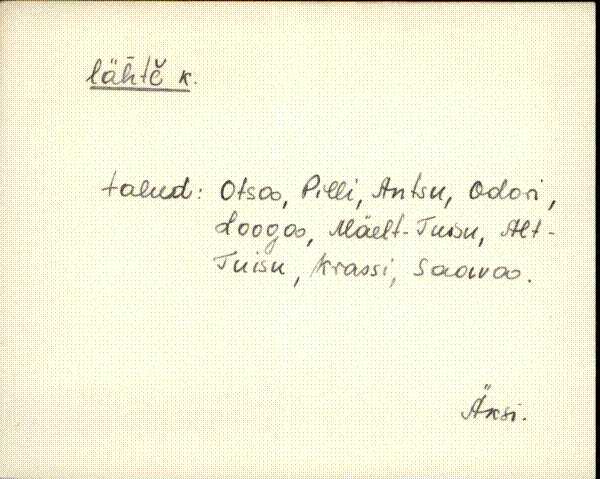 lähtĕ k.
talud: Otsoo, Pilli, Antsu, Odori,
Loogoo, Mäelt-Tuisu, Alt-
Tuisu, Krassi, Saavoo.
Äksi.